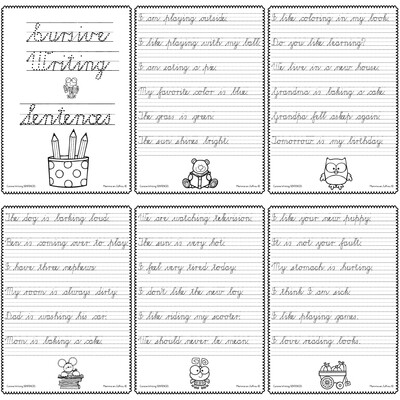 Cursive
Writing
Sentences
I am playing outside.
I like playing with my ball.
I am eating a pie.
My favorite color is blue.
The grass is green.
The sun shines bright.
I like coloring in my book.
Do you like learning?
We live in a new house.
Grandma is baking a cake.
Grandpa fell asleep again.
Tomorrow is my birthday.
The dog is barking loud.
Ben is coming over to play.
I have three nephews.
My room is always dirty.
Dad is washing his car.
Mom is baking a cake.
We are watching television.
The sun is very hot.
I feel very tired today.
I don't like the new boy.
I like riding my scooter.
We should never be mean.
I like your new puppy.
It is not your fault.
My stomach is hurting.
I think I am sick.
I like playing games.
I love reading books.